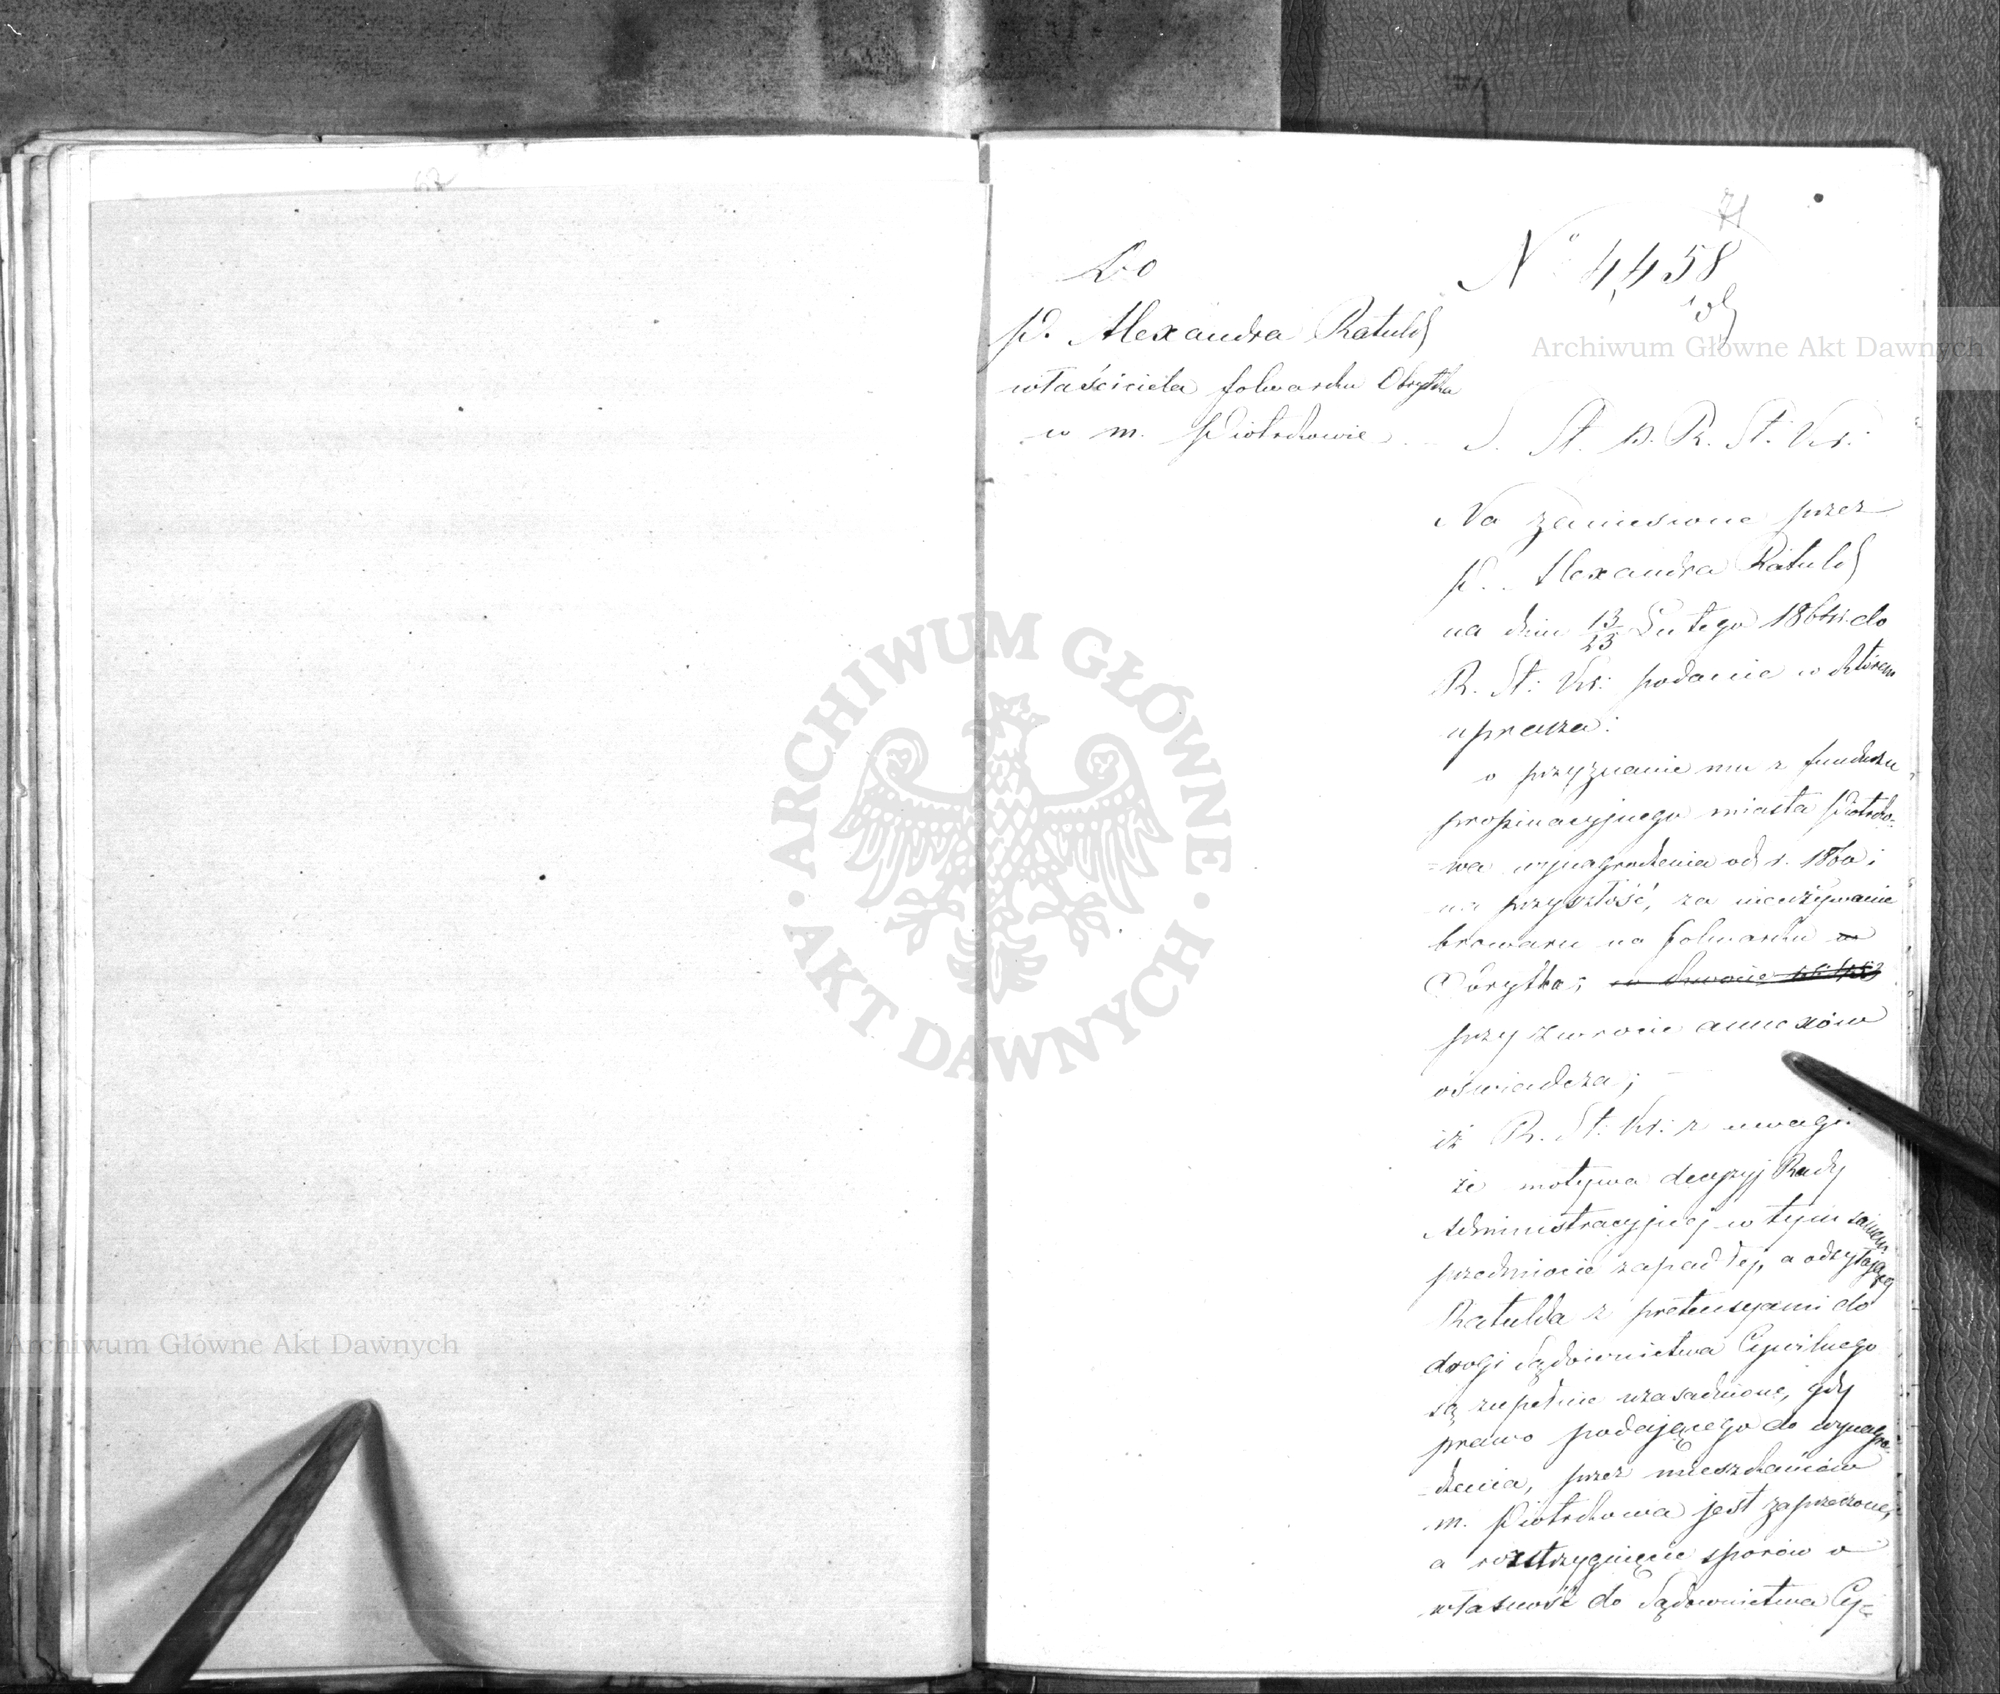 71
Do
P. Alexandra Ratuld
właściciela folwarku Obrytka
w m. Piotrkowie
N° 4,458
S. St. p. R. St. Kr:
Na zaniesione przez
P. Alexandra Ratuld
na dniu 13/25 Lutego 1864r. do
R. St: Kr: podanie w którem
uprasza:
o przyznanie mu z funduszu
propinacyjnego miasta Piotrko-
-wa wynagrodzenia od r. 1860 i
na przyszłość, za nieużywanie
browaru na folwarku w
Obrytka;
przy zwrocie annexów
oświadcza;
iż R. St: Kr: z uwagi
że motywa decyzyj Rady
Administracyjnej w tym samem
przedmiocie zapadłej, a odsyłającej
Ratulda z pretensyami do
drogi Sądownictwa Cywilnego
są zupełnie uzasadnione, gdy
prawo podającego do wynagro-
-dzenia, przez mieszkańców
m. Piotrkowa jest zaprzeczone,
a rozstrzygnięcie sporów o
własność do Sądownictwa Cy-
Archiwum Główne Akt Dawnych
Archiwum Główne Akt Dawnych
ARCHIWUM GŁÓWNE
AKT DAWNYCH